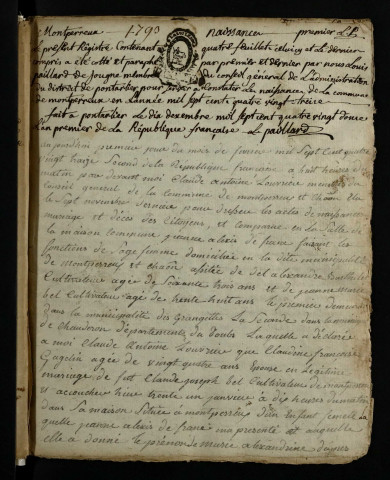 Montperreux 1793 naissance premier
Le present Registre Contenant quatre feuillet celuicy et le dernier
compris a été cotté et paraphé par premier et dernier par nous Louis
paillard de Jougne membre du conseil general de L'administration
du district de pontarlier pour servir a constater la naissance de la commune
de montperreux en L'année mil sept cent quatre vingt treize
fait a pontarlier Le dix decembre mil sept cent quatre vingt douze
L'an premier de La République française L paillard
aujourdhui premier jour du mois de fevrier mil Sept Cent quatre
vingt treize Second de la République françoise a huit heures du
matin pardevant moi Claude antoine Louvrier membre du
Conseil general de la Commune de montperreux
Sept novembre dernier pour dresser les actes de naissances
mariage et décès des Citoyens, est comparue en la Salle de
la maison commune jeanne alexis de franc faisant les
fonctions de Sage femme domiciliée en la ditte municipalité
de montperreux et Chaon assistée de del alexandre
Cultivateur agée de Soixante trois ans et de jeanne marie
bel Cultivateur agé de trente huit ans le premier demeurant
dans la municipalité des Grangettes la Seconde dans la
de Chaudron departement du Doubs Laquelle a déclaré
a moi Claude Antoine Louvrier que Claudine françoise
Gaglin agée de vingt quatre ans Epouse en Legitime
mariage de fut Claude joseph bel Cultivateur de montperreux
est accouchée hier trente un janvier a dix heures du matin
dans sa maison Située a montperreux d'un Enfant femelle
quelle jeanne alexis de franc m'a presenté et auquelle
elle a donné le prénom de marie alexandrine